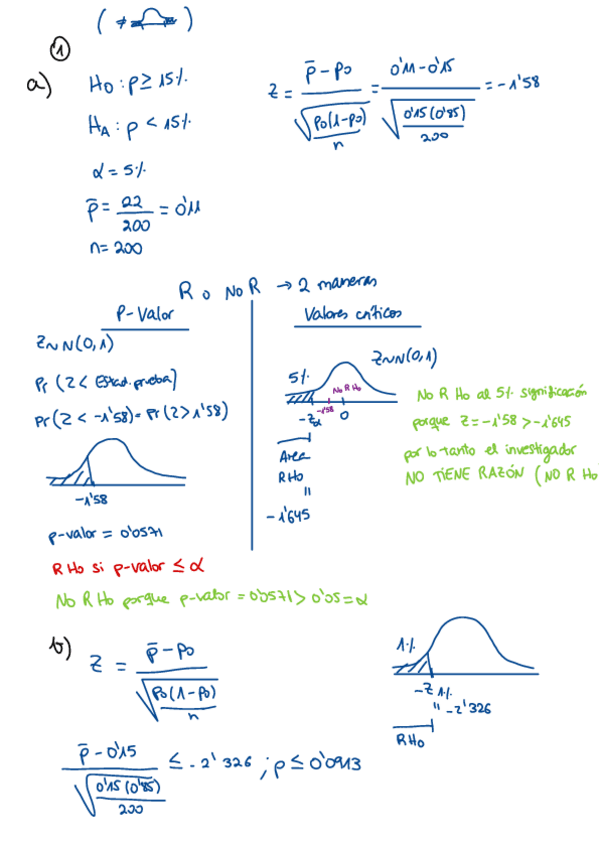 ( ≠ )
①
a) H₀ : p ≥ 15%
Hᴀ : p < 15%
α = 5%
p̄ = 22/200 = 0'11
n = 200
Z = (p̄ - p₀) / √(p₀(1-p₀)/n) = (0'11 - 0'15) / √(0'15(0'85)/200) = -1'58
R o No R → 2 maneras
P-Valor
Z ~ N(0,1)
Pr (Z < Estad. prueba)
Pr (Z < -1'58) = Pr (Z > 1'58)
-1'58
p-valor = 0'0571
R H₀ si p-valor ≤ α
No R H₀ porque p-valor = 0'0571 > 0'05 = α
Valores críticos
5%
Z ~ N(0,1)
No R H₀
-Zα -1'58 0
Area
R H₀
=
-1'645
No R H₀ al 5% significación
porque Z = -1'58 > -1'645
por lo tanto el investigador
NO TIENE RAZÓN (NO R H₀
b) Z = (p̄ - p₀) / √(p₀(1-p₀)/n)
(p̄ - 0'15) / √(0'15(0'85)/200) ≤ -2'326 ; p ≤ 0'0913
1%
-Z 1%
= -2'326
R H₀